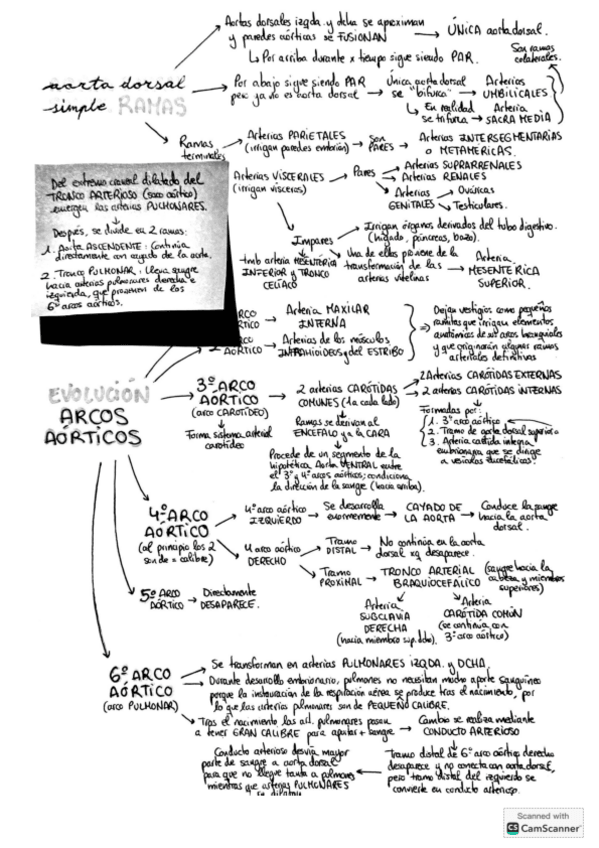 Aortas dorsales izqda. y dcha se aproximan
y paredes aórticas se FUSIONAN → ÚNICA aorta dorsal.
↳ Por arriba durante x tiempo sigue siendo PAR.
Son ramas
colaterales.
aorta dorsal
simple RAMAS
Por abajo sigue siendo PAR
pero ya no es aorta dorsal → Única aorta dorsal
se "bifurca" → Arterias
UMBILICALES
↳ En realidad
se trifurca → Arteria
SACRA MEDIA
Ramas
terminales
Arterias PARIETALES
(irrigan paredes embrión) → Son
PARES → Arterias INTERSEGMENTARIAS
o METAMÉRICAS.
Arterias VISCERALES
(irrigan vísceras)
Pares
Arterias SUPRARRENALES
Arterias RENALES
Arterias
GENITALES
Ováricas
Testiculares.
Impares
Irrigan órganos derivados del tubo digestivo.
(hígado, páncreas, bazo).
tmb arteria MESENTÉRICA
INFERIOR y TRONCO
CELÍACO
Una de ellas proviene de la
transformación de las
arterias vitelinas → Arteria
MESENTERICA
SUPERIOR.
Del extremo craneal dilatado del
TRONCO ARTERIOSO (saco aórtico)
emergen las arterias PULMONARES.
Después, se divide en 2 ramas:
1. Aorta ASCENDENTE: Continúa
directamente con cayado de la aorta.
2. Tronco PULMONAR: Lleva sangre
hacia arterias pulmonares derecha e
izquierda, que provienen de los
6º arcos aórticos.
ARCO
AÓRTICO → Arteria MAXILAR
INTERNA
AÓRTICO → Arterias de los músculos
INFRAHIOIDEOS y del ESTRIBO
Dejan vestigios como pequeñas
ramitas que irrigan elementos
anatómicos de sus arcos branquiales
y que originarán algunas ramas
arteriales definitivas
EVOLUCIÓN
ARCOS
AÓRTICOS
3º ARCO
AÓRTICO
(arco CAROTÍDEO)
Forma sistema arterial
carotídeo
2 arterias CARÓTIDAS
COMUNES (1 a cada lado)
2 Arterias CARÓTIDAS EXTERNAS
2 arterias CARÓTIDAS INTERNAS
Ramas se derivan al
ENCÉFALO y a la CARA
Procede de un segmento de la
hipotética Aorta VENTRAL entre
el 3º y 4º arcos aórticos; condiciona
la dirección de la sangre (hacia arriba).
Formadas por:
1. 3º arco aórtico
2. Tramo de aorta dorsal superior
3. Arteria carótida interna
embrionaria que se dirige
a vesículas encefálicas.
4º ARCO
AÓRTICO
(al principio los 2
son de = calibre)
4º arco aórtico
IZQUIERDO → Se desarrolla
enormemente → CAYADO DE
LA AORTA → Conduce la sangre
hacia la aorta
dorsal.
4 arco aórtico
DERECHO
Tramo
DISTAL → No continúa en la aorta
dorsal xq desaparece.
Tramo
PROXIMAL → TRONCO ARTERIAL
BRAQUIOCEFÁLICO
(sangre hacia la
cabeza y miembros
superiores)
Arteria
SUBCLAVIA
DERECHA
(hacia miembro sup. dcho).
Arteria
CARÓTIDA COMÚN
(se continúa con
3º arco aórtico)
5º ARCO
AÓRTICO → Directamente
DESAPARECE.
6º ARCO
AÓRTICO
(arco PULMONAR)
Se transforman en arterias PULMONARES IZQDA. y DCHA.
Durante desarrollo embrionario, pulmones no necesitan mucho aporte sanguíneo
porque la instauración de la respiración aérea se produce tras el nacimiento, por
lo que las arterias pulmonares son de PEQUEÑO CALIBRE.
Tras el nacimiento las art. pulmonares pasan
a tener GRAN CALIBRE para aportar + sangre → Cambio se realiza mediante
CONDUCTO ARTERIOSO
Tramo distal de 6º arco aórtico derecho
desaparece y no conecta con aorta dorsal,
pero tramo distal del izquierdo se
convierte en conducto arterioso.
Conducto arterioso desvía mayor
parte de sangre a aorta dorsal
para que no llegue tanta a pulmones
mientras que arterias PULMONARES
Scanned with
CS CamScanner